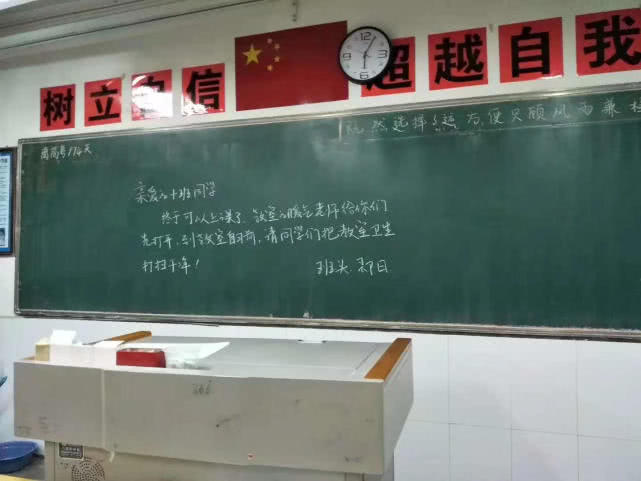 树立自信
超越自我
既然选择了远方便只顾风雨兼
离高考114天
亲爱的十班同学
终于可以上课了,教室的暖气老师给你们
先打开,到教室自习前,请同学们把教室卫生
打扫干净!
班头 即日